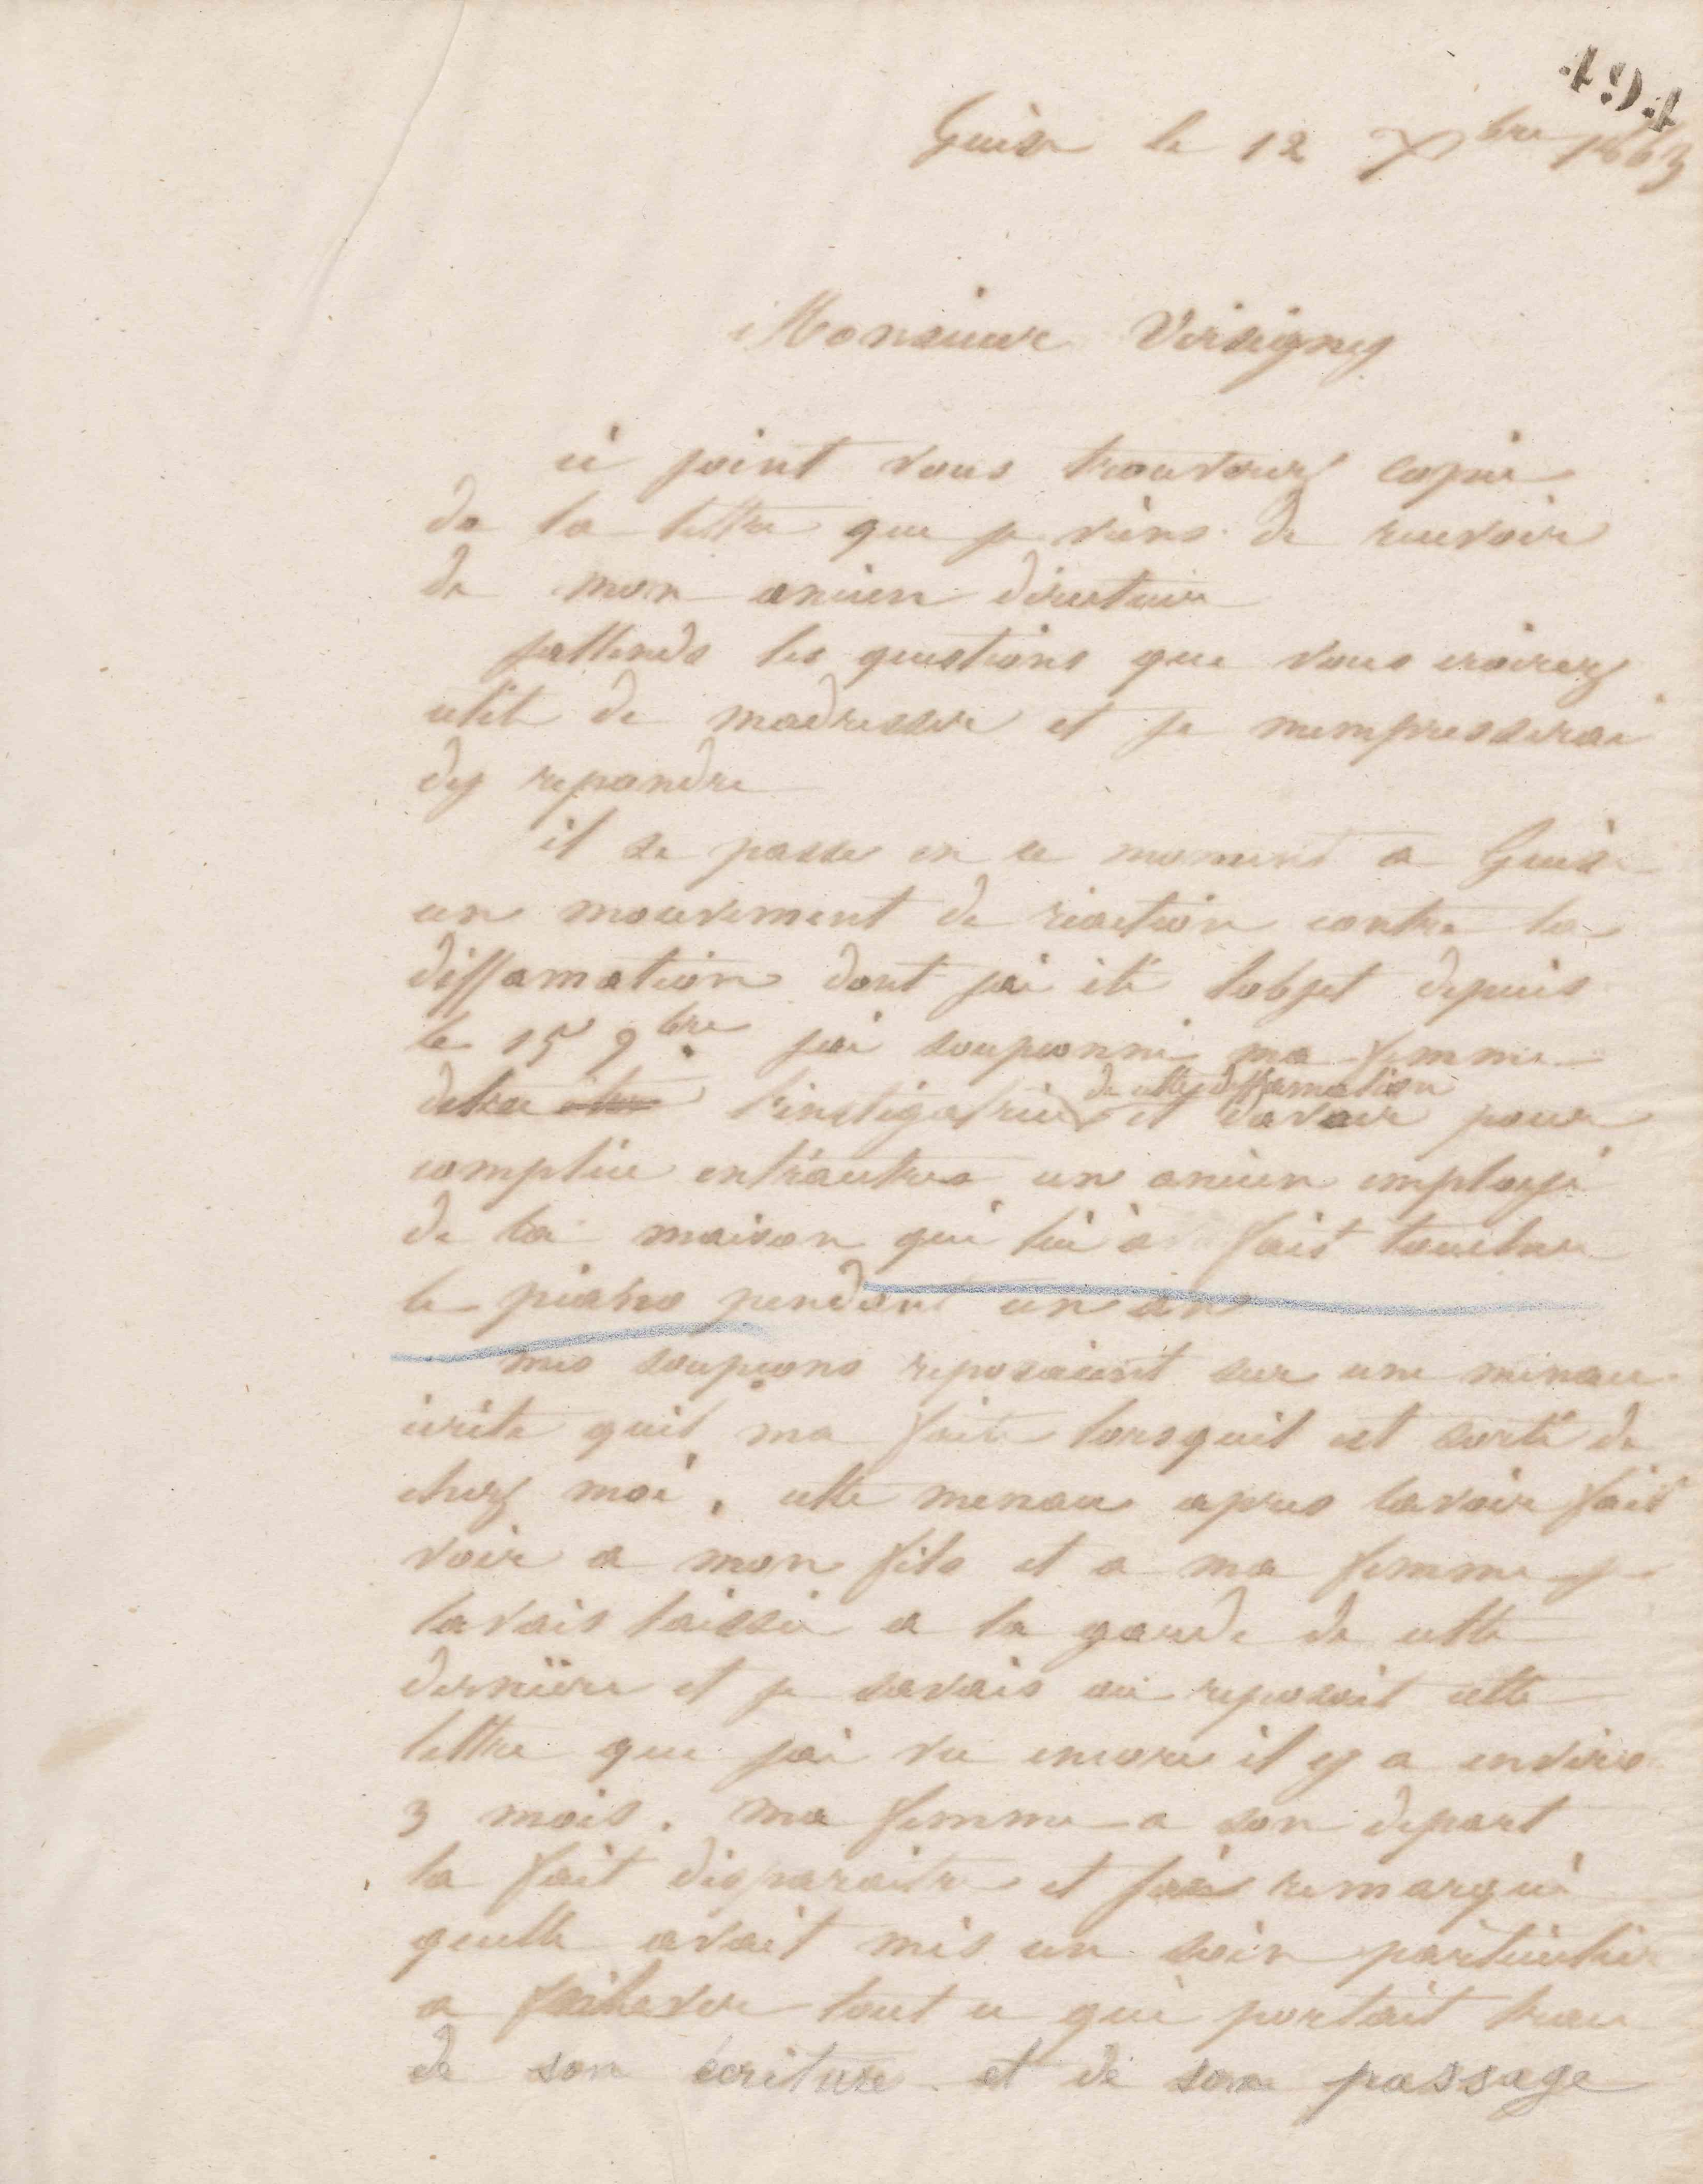 494
Guise le 12 Xbre 1863
Monsieur Versigny
ci joint vous trouverez copie
de la lettre que je viens de recevoir
de mon ancien directeur
jattends les questions que vous croirez
utile de madresser et je mempresserai
dy repondre
il se passe en ce moment a Guise
un mouvement de réaction contre la
diffamation dont jai été lobjet depuis
le 15 9bre jai soupconné ma femme
linstigatrice de cette diffamation et davoir pour
complice entr'autres un ancien employé
de la maison qui lui a fait toucher
le piano pendant un an
mes soupcons reposaient sur une menace
écrite quil ma faite lorsquil est sorti de
chez moi, cette menace apres lavoir fait
voir a mon fils et a ma femme je
lavais laissée a la garde de cette
dernière et je savais ou reposait cette
lettre que jai vu encore il y a environ
3 mois. ma femme a son depart
la fait disparaitre et jai remarqué
quelle avait mis un soin particulier
a enlever tout ce qui portait trace
de son écriture et de son passage